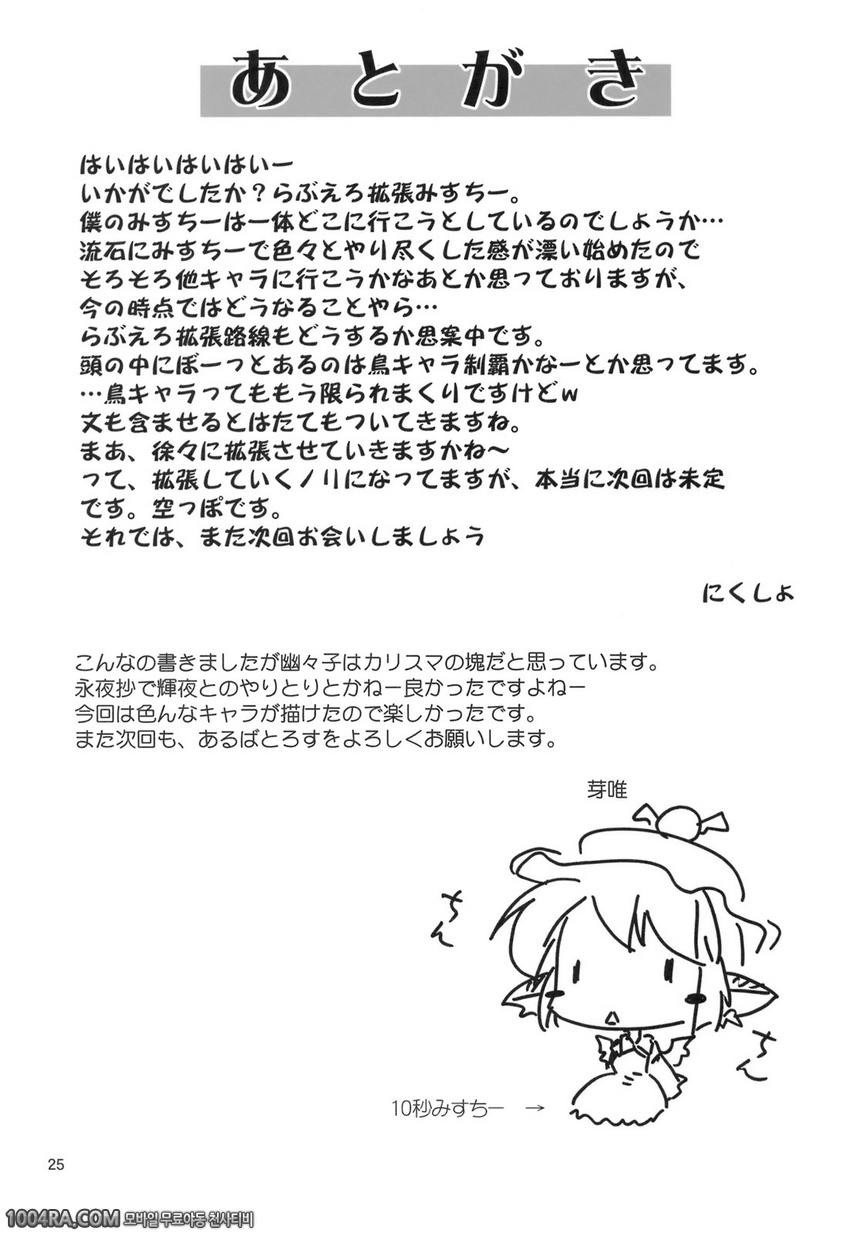 あとがき
はいはいはいはいー
いかがでしたか？らぶえろ拡張みすちー。
僕のみすちーは一体どこに行こうとしているのでしょうか…
流石にみすちーで色々とやり尽くした感が漂い始めたので
そろそろ他キャラに行こうかなあとか思っておりますが、
今の時点ではどうなることやら…
らぶえろ拡張路線もどうするか思案中です。
頭の中にぼーっとあるのは鳥キャラ制覇かなーとか思ってます。
…鳥キャラってももう限られまくりですけどw
文も含ませるとはたてもついてきますね。
まあ、徐々に拡張させていきますかね～
って、拡張していくノリになってますが、本当に次回は未定
です。空っぽです。
それでは、また次回お会いしましょう
にくしょ
こんなの書きましたが幽々子はカリスマの塊だと思っています。
永夜抄で輝夜とのやりとりとかねー良かったですよねー
今回は色んなキャラが描けたので楽しかったです。
また次回も、あるばとろすをよろしくお願いします。
芽唯
ちん
ちん
10秒みすちー →
25
1004RA.COM 모바일 무료야동 천사티비